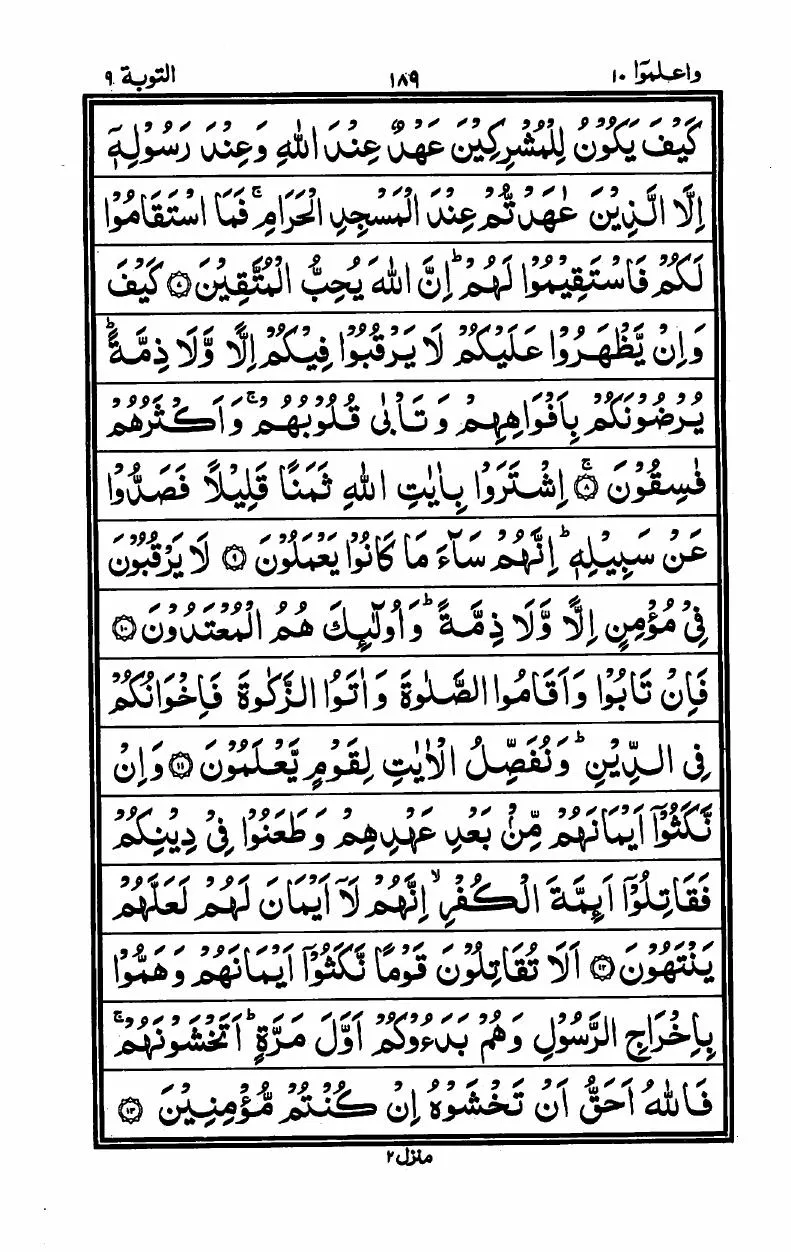 واعلموٓا ١٠ ١٨٩ التوبة ٩
كَيْفَ يَكُوْنُ لِلْمُشْرِكِيْنَ عَهْدٌ عِنْدَ اللّٰهِ وَعِنْدَ رَسُوْلِهٖٓ
اِلَّا الَّذِيْنَ عٰهَدْتُّمْ عِنْدَ الْمَسْجِدِ الْحَرَامِ ۚ فَمَا اسْتَقَامُوْا
لَكُمْ فَاسْتَقِيْمُوْا لَهُمْ ؕ اِنَّ اللّٰهَ يُحِبُّ الْمُتَّقِيْنَ ۝٧ كَيْفَ
وَاِنْ يَّظْهَرُوْا عَلَيْكُمْ لَا يَرْقُبُوْا فِيْكُمْ اِلًّا وَّلَا ذِمَّةً ؕ
يُرْضُوْنَكُمْ بِاَفْوَاهِهِمْ وَتَاْبٰى قُلُوْبُهُمْ ۚ وَاَكْثَرُهُمْ
فٰسِقُوْنَ ۝٨ۚ اِشْتَرَوْا بِاٰيٰتِ اللّٰهِ ثَمَنًا قَلِيْلًا فَصَدُّوْا
عَنْ سَبِيْلِهٖ ؕ اِنَّهُمْ سَآءَ مَا كَانُوْا يَعْمَلُوْنَ ۝٩ لَا يَرْقُبُوْنَ
فِيْ مُؤْمِنٍ اِلًّا وَّلَا ذِمَّةً ؕ وَاُولٰٓئِكَ هُمُ الْمُعْتَدُوْنَ ۝١٠
فَاِنْ تَابُوْا وَاَقَامُوا الصَّلٰوةَ وَاٰتَوُا الزَّكٰوةَ فَاِخْوَانُكُمْ
فِي الدِّيْنِ ؕ وَنُفَصِّلُ الْاٰيٰتِ لِقَوْمٍ يَّعْلَمُوْنَ ۝١١ وَاِنْ
نَّكَثُوْٓا اَيْمَانَهُمْ مِّنْۢ بَعْدِ عَهْدِهِمْ وَطَعَنُوْا فِيْ دِيْنِكُمْ
فَقَاتِلُوْٓا اَئِمَّةَ الْكُفْرِ ۙ اِنَّهُمْ لَآ اَيْمَانَ لَهُمْ لَعَلَّهُمْ
يَنْتَهُوْنَ ۝١٢ اَلَا تُقَاتِلُوْنَ قَوْمًا نَّكَثُوْٓا اَيْمَانَهُمْ وَهَمُّوْا
بِاِخْرَاجِ الرَّسُوْلِ وَهُمْ بَدَءُوْكُمْ اَوَّلَ مَرَّةٍ ؕ اَتَخْشَوْنَهُمْ ۚ
فَاللّٰهُ اَحَقُّ اَنْ تَخْشَوْهُ اِنْ كُنْتُمْ مُّؤْمِنِيْنَ ۝١٣
منزل ٢